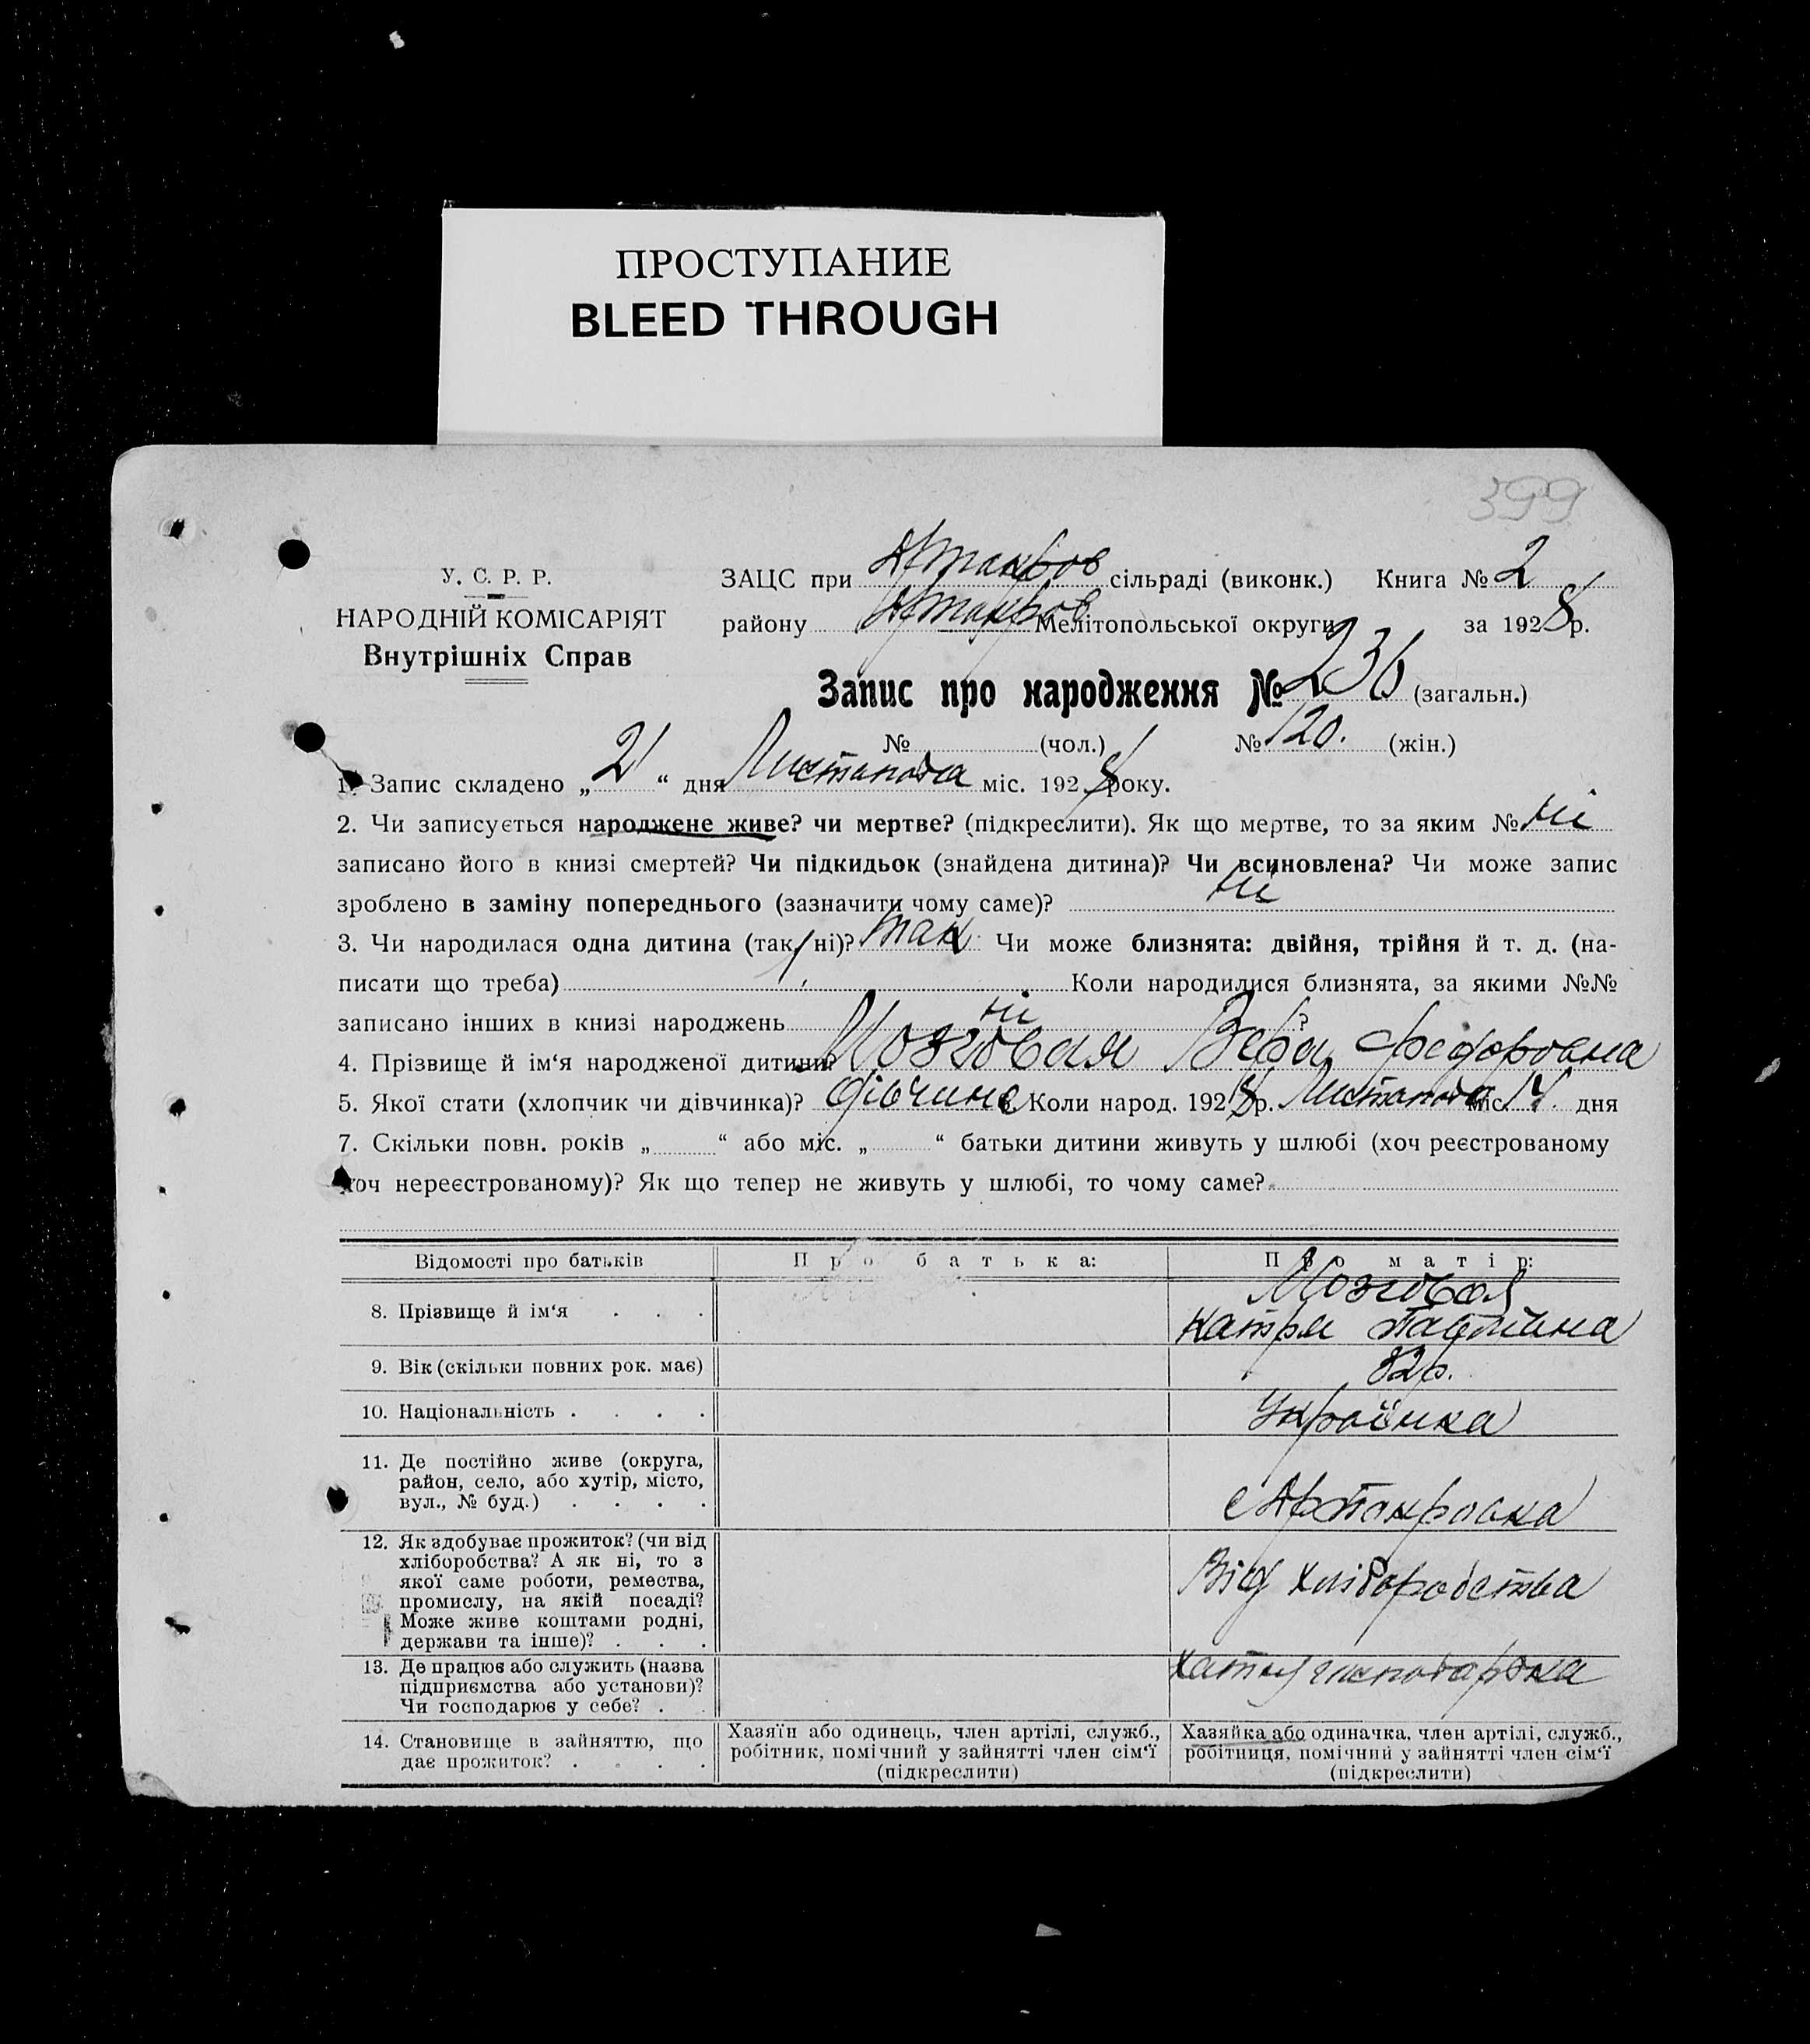 ПРОСТУПАНИЕ
BLEED THROUGH
399
У. С. Р. Р.
НАРОДНІЙ КОМІСАРІЯТ
Внутрішніх Справ
ЗАЦС при сільраді (виконк.) Книга № 2
району Мелітопольської округи за 1928 р.
Запис про народження № 236 (загальн.)
№ (чол.) № 120. (жін.)
1. Запис складено „ 21 “ дня Листопада міс. 1928 року.
2. Чи записується народжене живе? чи мертве? (підкреслити). Як що мертве, то за яким № ні
записано його в книзі смертей? Чи підкидьок (знайдена дитина)? Чи всиновлена? Чи може запис
зроблено в заміну попереднього (зазначити чому саме)? ні
3. Чи народилася одна дитина (так, ні)? так Чи може близнята: двійня, трійня й т. д. (на-
писати що треба) Коли народилися близнята, за якими №№
записано інших в книзі народжень ні ?
4. Прізвище й ім‘я народженої дитини? Мозговая Вера Федоровна
5. Якої стати (хлопчик чи дівчинка)? дівчина Коли народ. 1928 р. Листопада міс. 14. дня
7. Скільки повн. років „ “ або міс. „ “ батьки дитини живуть у шлюбі (хоч реєстрованому
хоч нереєстрованому)? Як що тепер не живуть у шлюбі, то чому саме?
Відомості про батьків Про батька: Про матір:
8. Прізвище й ім‘я . . . Мозговая
Катря Павлівна
9. Вік (скільки повних рок. має) 32р.
10. Національність . . . . Українка
11. Де постійно живе (округа,
район, село, або хутір, місто,
вул., № буд.) . . . .
12. Як здобуває прожиток? (чи від
хліборобства? А як ні, то з
якої саме роботи, ремества,
промислу, на якій посаді?
Може живе коштами родні,
держави та інше)? . . .
Від хліборобства
13. Де працює або служить (назва
підприємства або установи)?
Чи господарює у себе? .
14. Становище в зайняттю, що
дає прожиток? . . . .
Хазяїн або одинець, член артілі, служб.,
робітник, помічний у зайнятті член сім‘ї
(підкреслити)
Хазяйка або одиначка, член артілі, служб.,
робітниця, помічний у зайнятті член сім‘ї
(підкреслити)